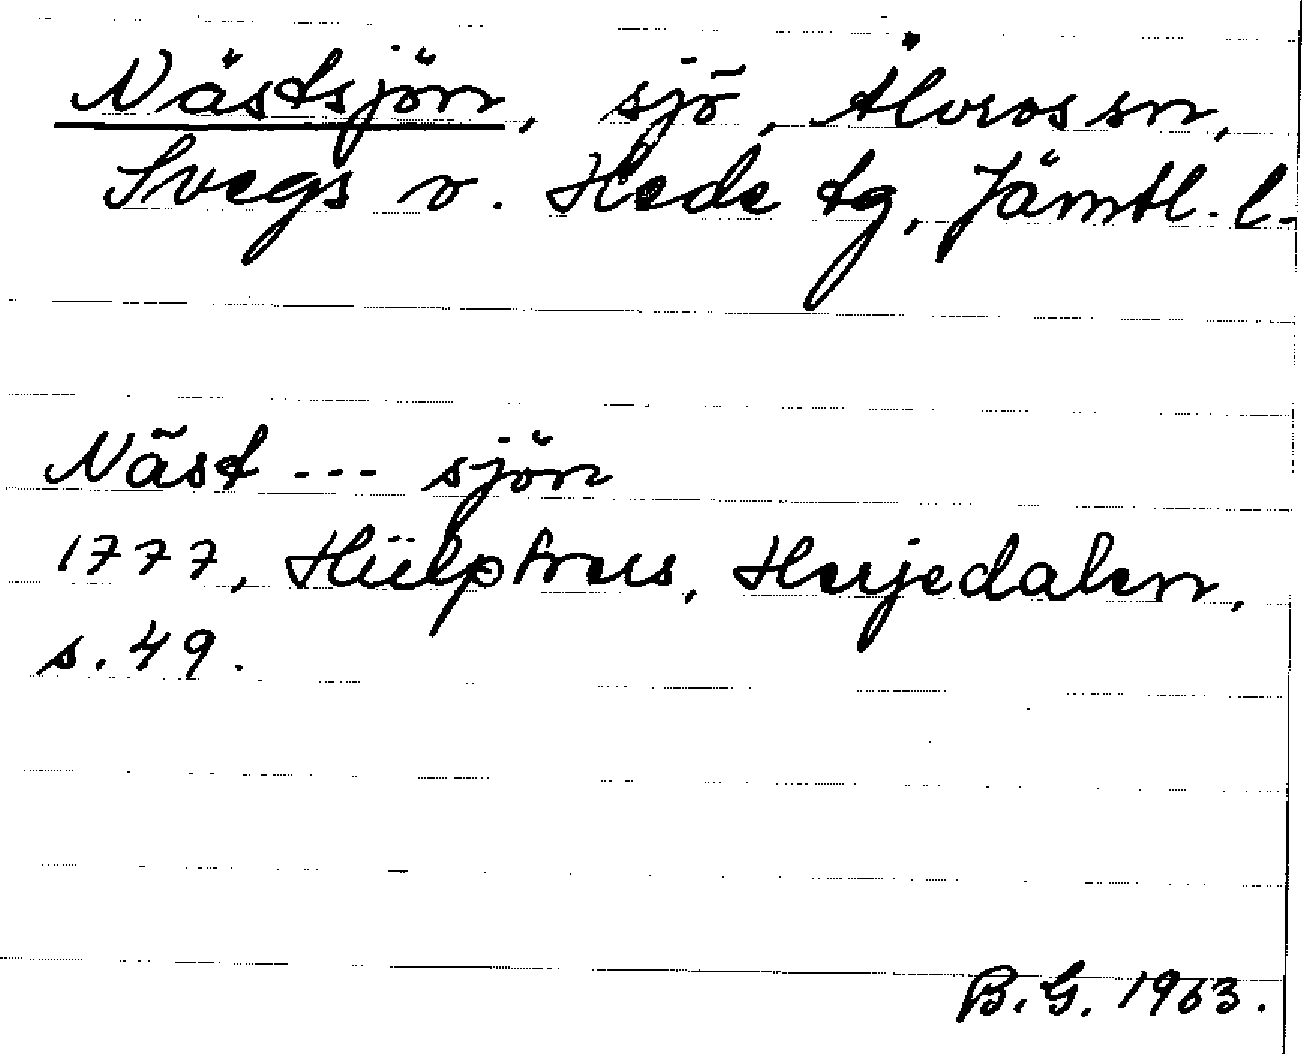 Nästsjön, sjö, Älvros sn,
Svegs o. Hede tg, Jämtl. l.
Näst --- sjön
1777, Hülphers, Herjedalen,
s. 49.
B.G. 1963.